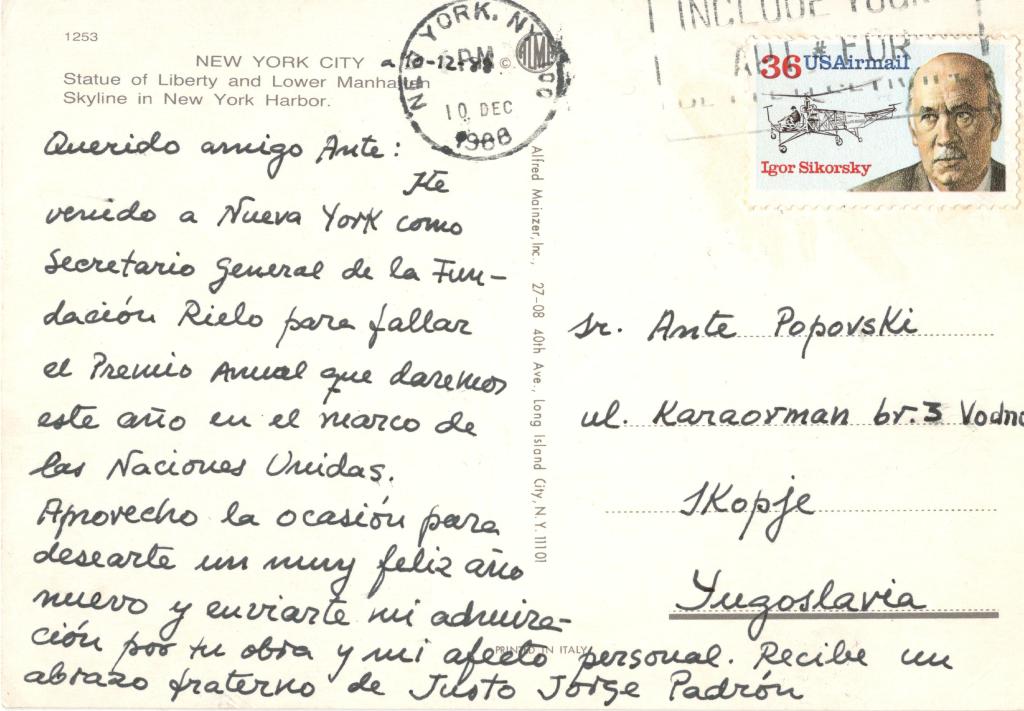 1253
NEW YORK CITY
Statue of Liberty and Lower Manhattan
Skyline in New York Harbor.
a 10-12-88
©
NEW YORK, NY
PM
10 DEC
1988
INCLUDE YOUR
FOR
36 USAirmail
Igor Sikorsky
Querido amigo Ante:
He
venido a Nueva York como
Secretario General de la Fun-
dación Rielo para fallar
el Premio Anual que daremos
este año en el marco de
las Naciones Unidas.
Aprovecho la ocasión para
desearte un muy feliz año
nuevo y enviarte mi admira-
ción por tu obra y mi afecto personal. Recibe un
abrazo fraterno de Justo Jorge Padrón
Alfred Mainzer, Inc., 27-08 40th Ave., Long Island City, N.Y. 11101
PRINTED IN ITALY
Sr. Ante Popovski
ul. Karaorman br. 3 Vodno
Skopje
Yugoslavia